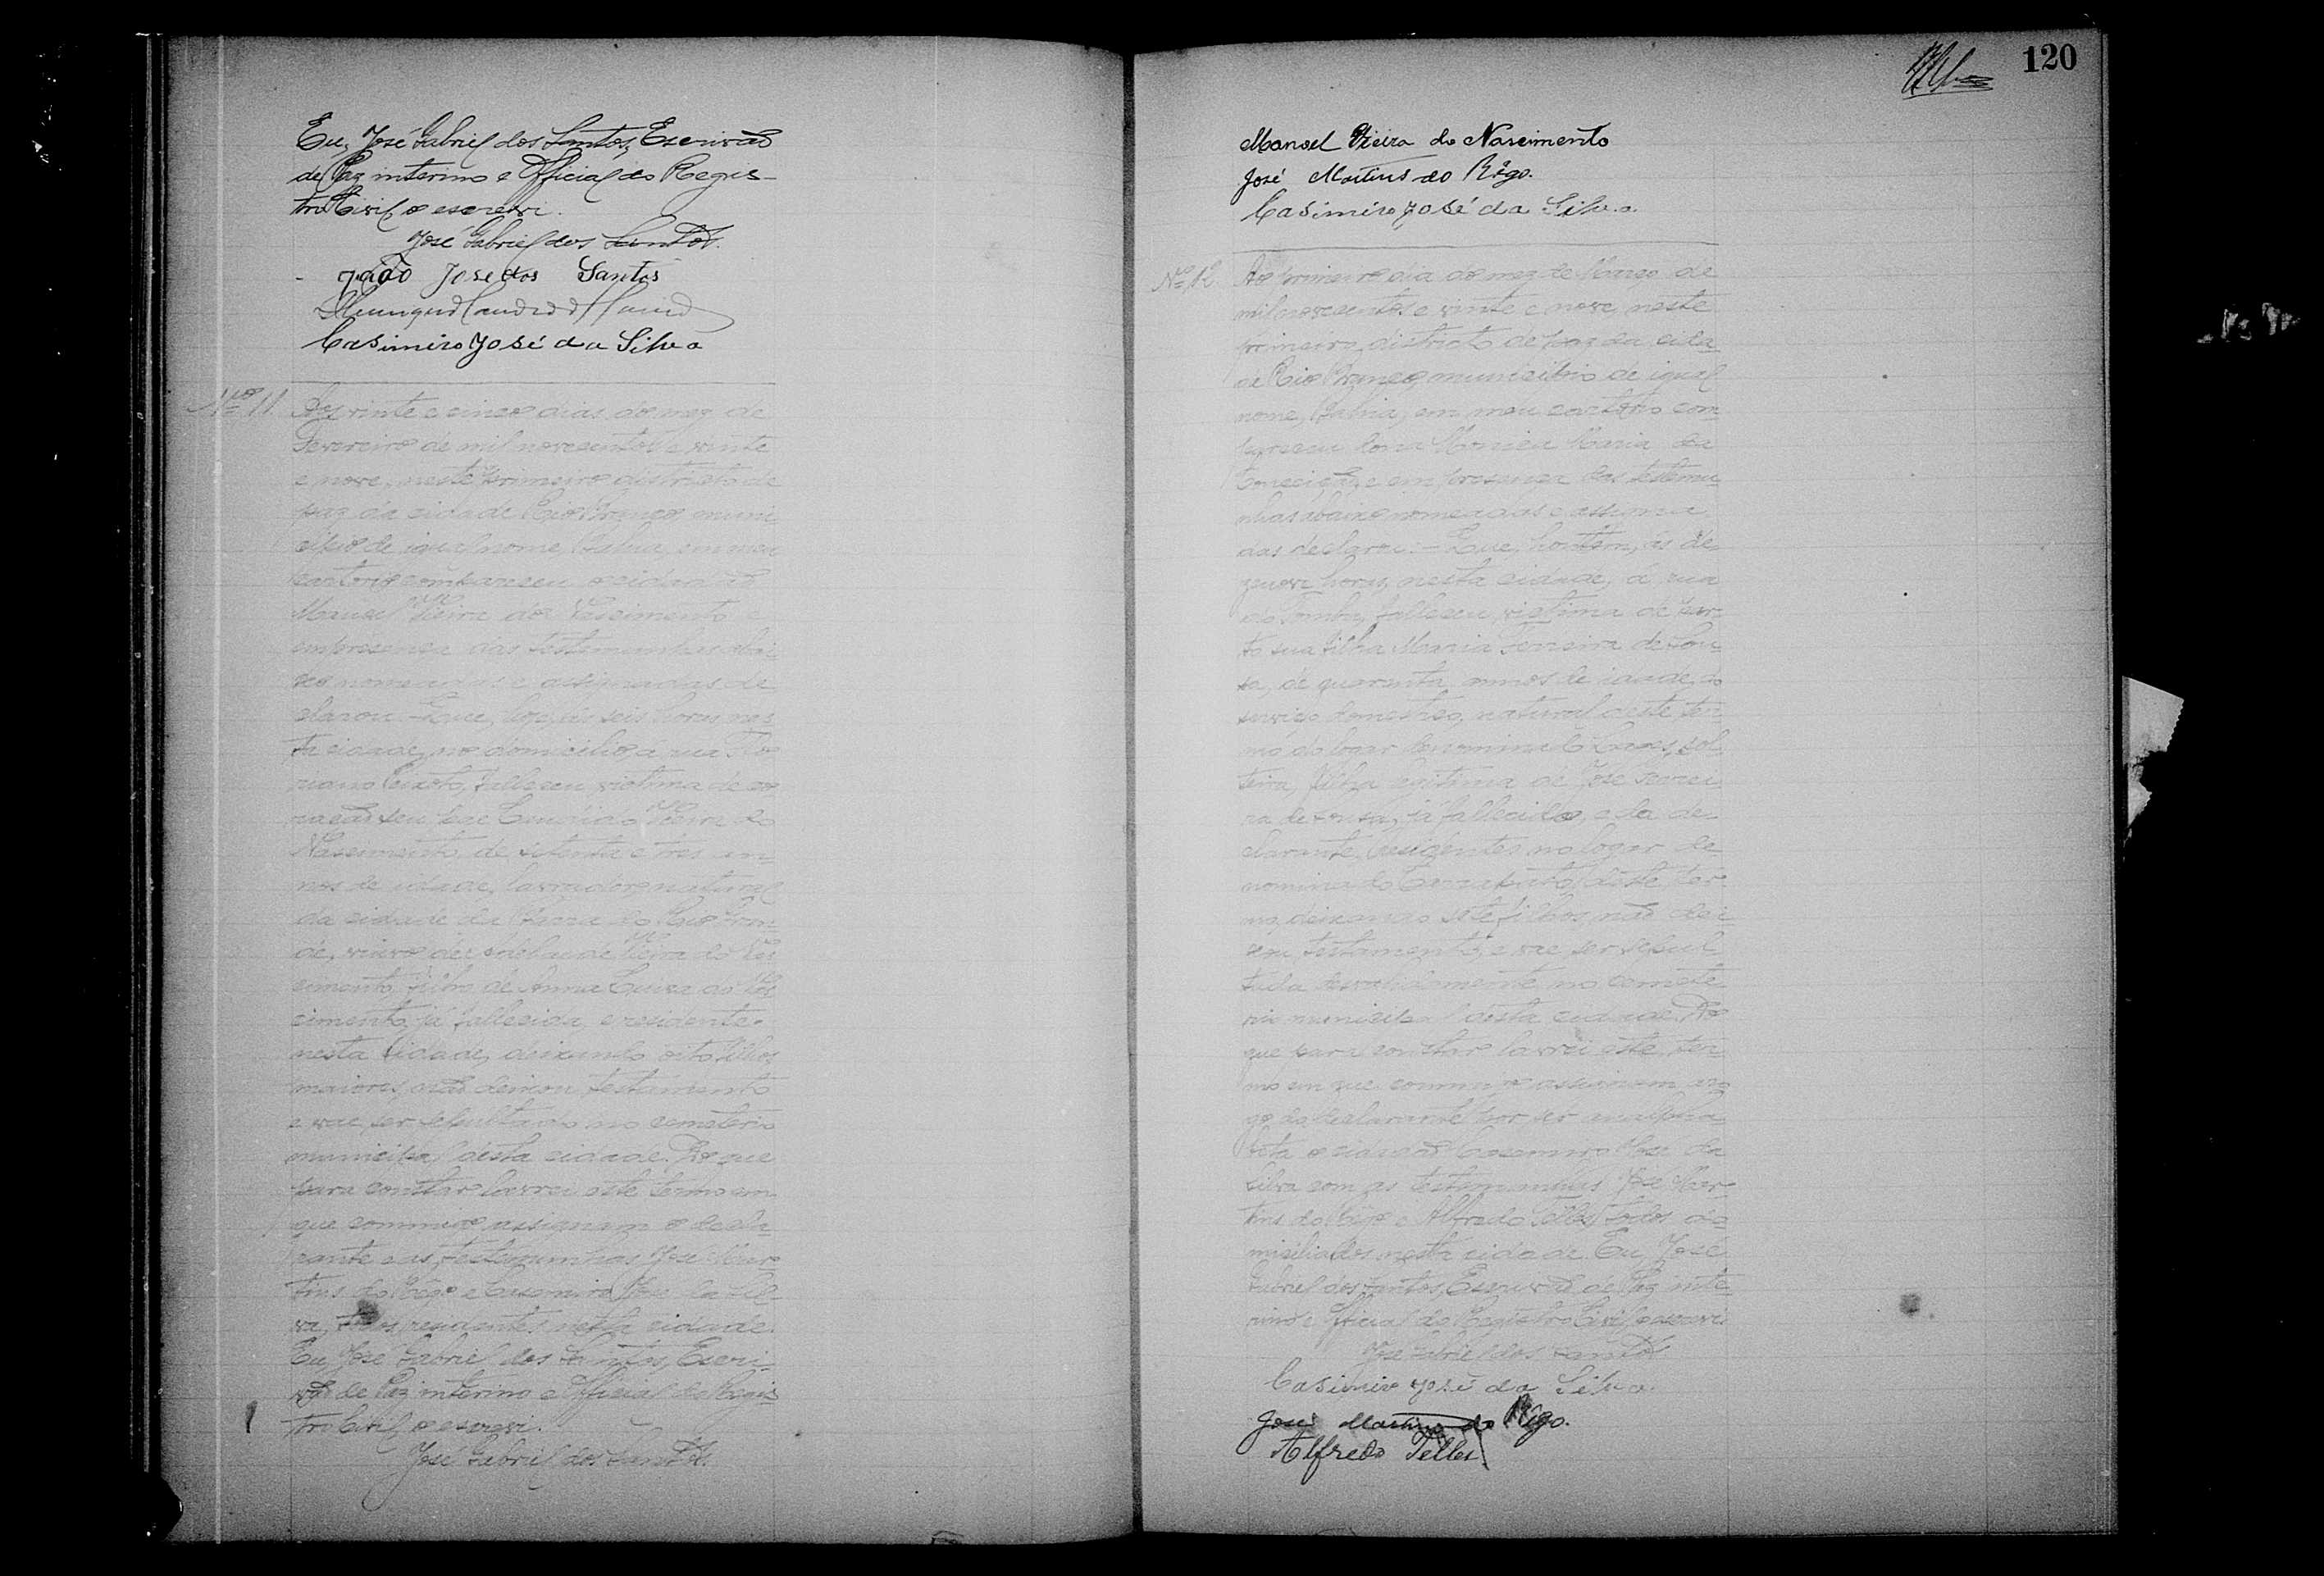 Eu, José Gabriel dos Santos, Escrivão
de Paz interino e Official do Regis-
tro Civil o escrevi.
José Gabriel dos Santos.
João José dos Santos
Casimiro José da Silva
Nº 11. Aos vinte e cinco dias do mez de
Fevereiro de mil novecentos e vinte
e nove, neste primeiro districto de
paz da cidade Rio Branco, muni-
cipio de igual nome, Bahia, em meu
cartorio compareceu o cidadão
Manoel Vieira do Nascimento e
em presença das testemunhas abai-
xo nomeadas e assignadas de-
clarou: Que, hoje, ás seis horas nes-
ta cidade, no domicilio, á rua Flo-
riano Peixoto, falleceu victima de co-
ração seu pae Candido Vieira do
Nascimento, de setenta e tres an-
nos de idade, lavrador, natural
da cidade da Barra do Rio Gran-
de, viuvo de Vieira do Nas-
cimento, filho de Anna Luiza do Nas-
cimento, já fallecida, e residente
nesta cidade, deixando oito filhos
maiores, não deixou testamento
e vae ser sepultado no cemeterio
municipal desta cidade. Do que
para constar lavrei este termo em
que commigo assignam o decla-
rante e as testemunhas José Mar-
tins do Rêgo e Casemiro José da Sil-
va, todos residentes nesta cidade.
Eu, José Gabriel dos Santos, Escri-
vão de Paz interino e Official do Regis-
tro Civil, o escrevi.
José Gabriel dos Santos.
120
Manoel Vieira do Nascimento
José Martins do Rêgo.
Casimiro José da Silva.
Nº 12. Ao primeiro dia do mez de Março de
mil novecentos e vinte e nove, neste
primeiro districto de paz da cida-
de Rio Branco, municipio de igual
nome, Bahia, em meu cartorio com-
pareceu dona Monica Maria da
Conceição, e em presença das testemu-
nhas abaixo nomeadas e assigna-
das declarou: - Que, hontem, ás de-
zenove horas, nesta cidade, á rua
do falleceu victima de par-
to sua filha Maria Ferreira de Sou-
sa, de quarenta annos de idade, do
serviço domestico, natural deste ter-
mo do logar denominado sol-
teira, filha legitima de José Ferrei-
ra de Sousa, já fallecido, e da de-
clarante, residentes no logar de-
nominado deste ter-
mo, deixando sete filhos, não dei-
xou testamento, e vae ser sepul-
tada desvalidamente no cemete-
rio municipal desta cidade. Do
que para constar lavrei este ter-
mo em que commigo assignam, a ro-
go da declarante por ser analpha-
beta o cidadão Casemiro José da
Silva com as testemunhas José Mar-
tins do Rêgo e Alfredo Telles, todos do-
miciliados nesta cidade. Eu, José
Gabriel dos Santos, Escrivão de Paz inte-
rino e Official do Registro Civil, o escrevi.
José Gabriel dos Santos
Casimiro José da Silva.
José Martins do Rêgo.
Alfredo Telles